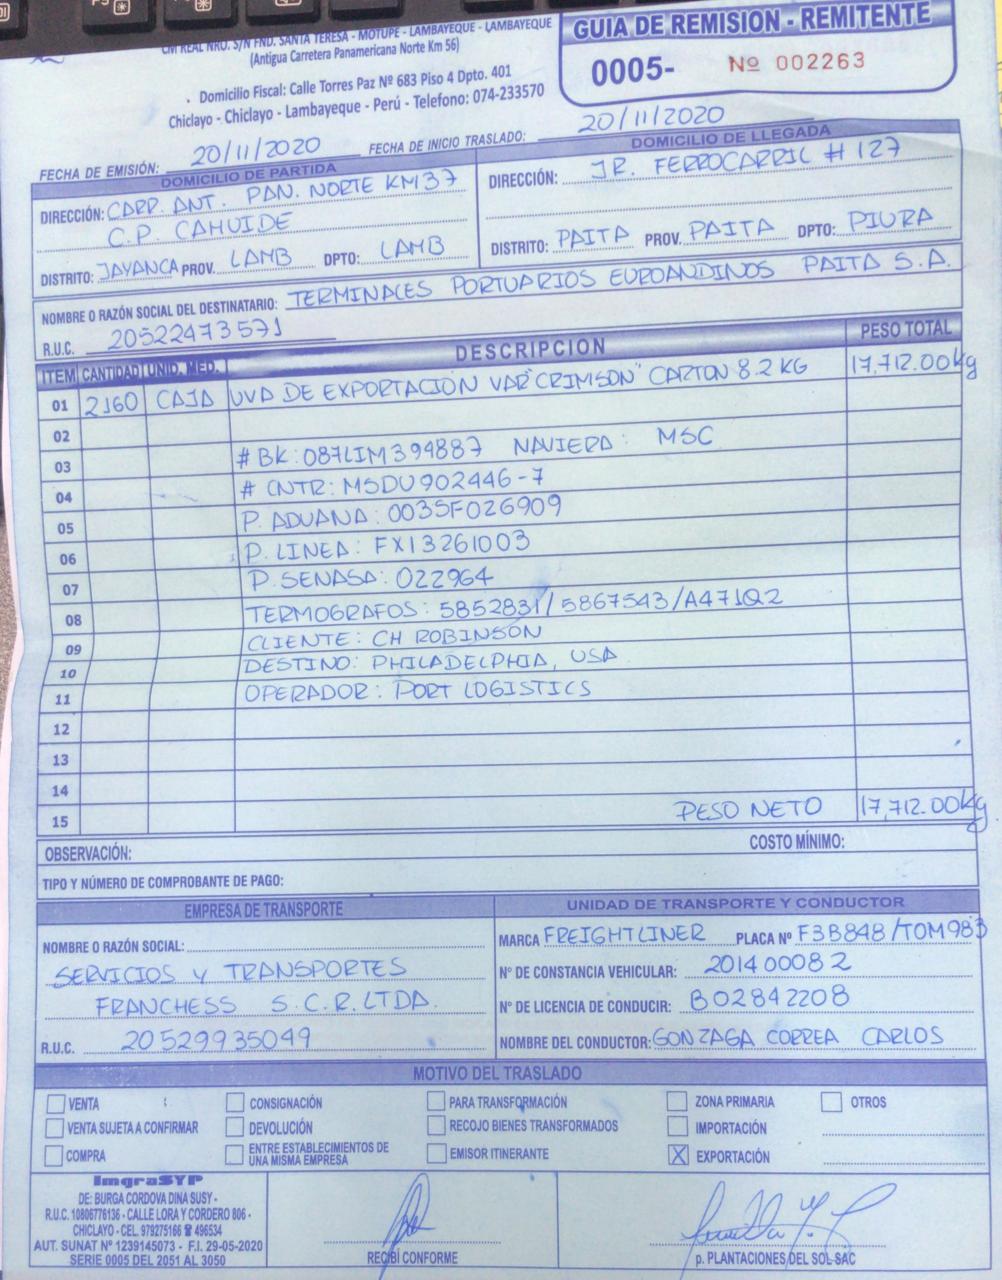 CM REAL NRO. S/N FND. SANTA TERESA - MOTUPE - LAMBAYEQUE - LAMBAYEQUE
(Antigua Carretera Panamericana Norte Km 56)
Domicilio Fiscal: Calle Torres Paz Nº 683 Piso 4 Dpto. 401
Chiclayo - Chiclayo - Lambayeque - Perú - Telefono: 074-233570
GUIA DE REMISION - REMITENTE
0005- Nº 002263
FECHA DE EMISIÓN: 20/11/2020 FECHA DE INICIO TRASLADO: 20/11/2020
DOMICILIO DE PARTIDA
DIRECCIÓN: CARR. ANT. PAN. NORTE KM37
C.P. CAHUIDE
DISTRITO: JAYANCA PROV. LAMB DPTO: LAMB
DOMICILIO DE LLEGADA
DIRECCIÓN: JR. FERROCARRIL # 127
DISTRITO: PAITA PROV. PAITA DPTO: PIURA
NOMBRE O RAZÓN SOCIAL DEL DESTINATARIO: TERMINALES PORTUARIOS EUROANDINOS PAITA S.A.
R.U.C. 20522473571
ITEM CANTIDAD UNID. MED. DESCRIPCION PESO TOTAL
01 2160 CAJA UVA DE EXPORTACIÓN VAR "CRIMSON" CARTON 8.2 KG 17,712.00kg
02
03 # BK: 087LIM394887 NAVIERA: MSC
04 # CNTR: MSDU902446-7
05 P. ADUANA: 003SF026909
06 P. LINEA: FX13261003
07 P. SENASA: 022964
08 TERMOGRAFOS: 5852831/5867543/A471Q2
09 CLIENTE: CH ROBINSON
10 DESTINO: PHILADELPHIA, USA
11 OPERADOR: PORT LOGISTICS
12
13
14
15 PESO NETO 17,712.00kg.
OBSERVACIÓN: COSTO MÍNIMO:
TIPO Y NÚMERO DE COMPROBANTE DE PAGO:
EMPRESA DE TRANSPORTE
NOMBRE O RAZÓN SOCIAL:
SERVICIOS Y TRANSPORTES
FRANCHESS S.C.R.LTDA.
R.U.C. 20529935049
UNIDAD DE TRANSPORTE Y CONDUCTOR
MARCA FREIGHTLINER PLACA Nº F3B848/TOM983
Nº DE CONSTANCIA VEHICULAR: 201400082
Nº DE LICENCIA DE CONDUCIR: B02842208
NOMBRE DEL CONDUCTOR: GONZAGA CORREA CARLOS
MOTIVO DEL TRASLADO
VENTA CONSIGNACIÓN PARA TRANSFORMACIÓN ZONA PRIMARIA OTROS
VENTA SUJETA A CONFIRMAR DEVOLUCIÓN RECOJO BIENES TRANSFORMADOS IMPORTACIÓN
COMPRA ENTRE ESTABLECIMIENTOS DE EMISOR ITINERANTE X EXPORTACIÓN
UNA MISMA EMPRESA
ImgraSYP
DE: BURGA CORDOVA DINA SUSY -
R.U.C. 10806776136 - CALLE LORA Y CORDERO 806 -
CHICLAYO - CEL. 979275166 ☎ 496534
AUT. SUNAT Nº 1239145073 - F.I. 29-05-2020
SERIE 0005 DEL 2051 AL 3050
RECIBÍ CONFORME
p. PLANTACIONES DEL SOL SAC